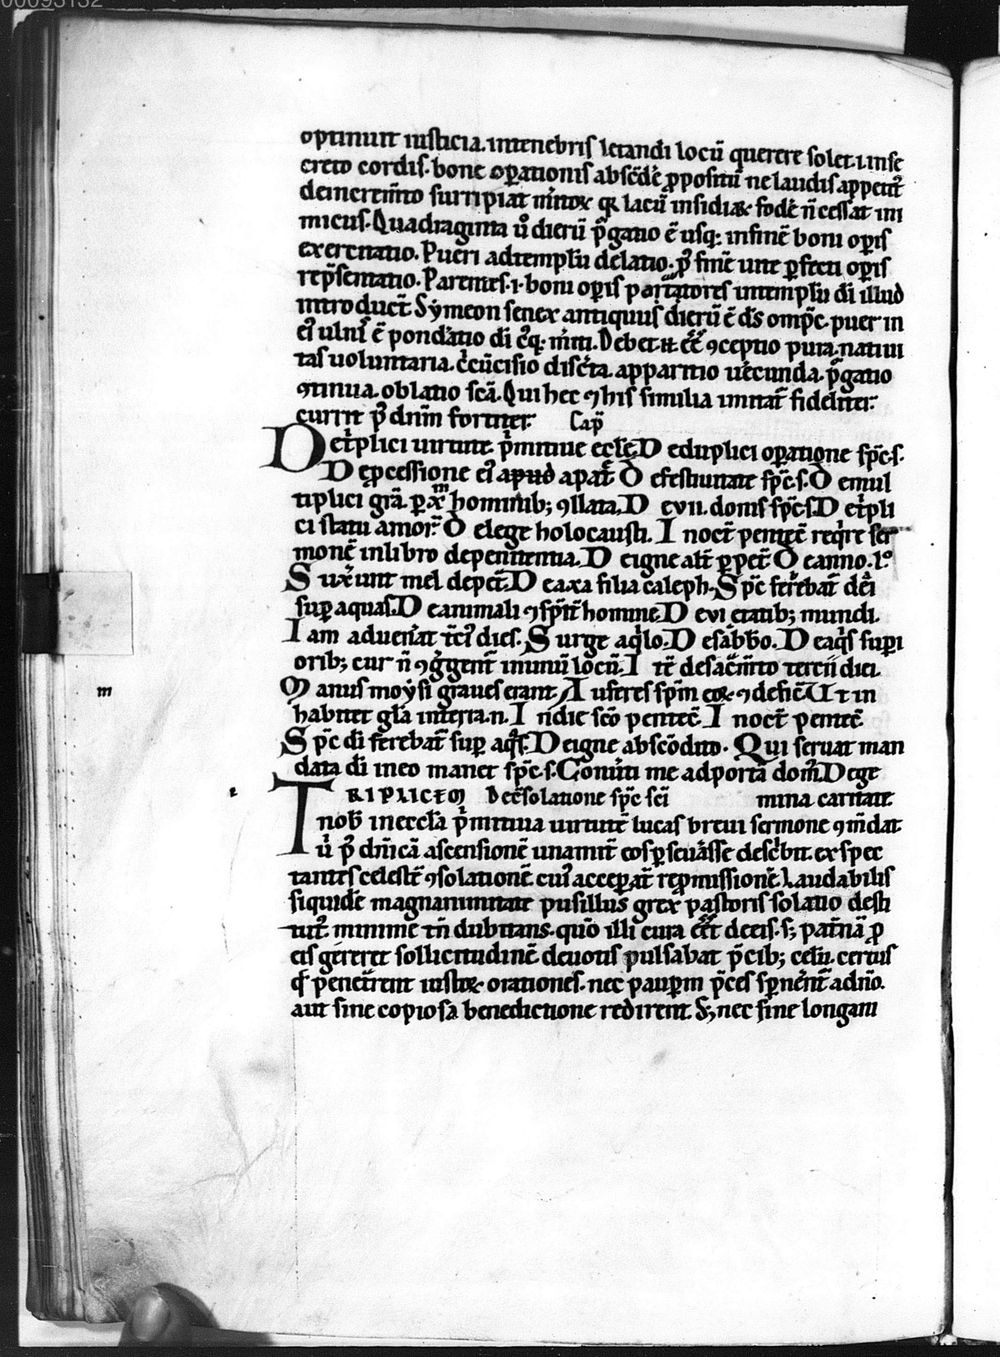 00093132
optinuit iusticia. intenebris letandi locū querere solet .i. inse
creto cordis. bone op̄ationis absēdē ꝓpositū ne laudis appetit᷒
demeremīto surripiat nimox qꝛ lacū insidiaꝝ fodē n̄ cessat ini
micus. Quadraginta ū dierū p̄gatio ē usq; infinē boni op̄is
exercitatio. Pueri adtemplū delatio. p̄ finē uite ꝑfecti op̄is
rep̄sentatio. Parentes .i. boni op̄is portatores intemplū di illud
introducūt. Symeon senex antiquus dierū ē ds omp̄c. puer in
ei᷒ ulnis ē pond̄atio di
tas uoluntaria. c̄cūcisio disc̄ta. apparitio uēcunda. p̄gatio
ꝯtinua. oblatio sc̄a. Qui hec ꝯ his similia imitat᷒ fideliter.
currit p̄ dnīm fortiter. Cap̄
Detⁱplici uirtute p̄mitiue ecl̄e. Deduplici op̄atione sp̄c.s.
Deꝓcessione ei᷒ apud apat̄. Defestiuitate sp̄c.s. Demul
tiplici grā. p. xm̄ hominib; ꝯllata. De vii. donis sp̄c.s. Detⁱpli
ci statu amoꝝ. De lege holocausti. I nocte pentec̄ reqⁱre ser
monē inlibro depenitentia. De igne alt̄ ꝑpet̄. De anno .l.º
Suxerunt mel depet̄. De axa filia caleph. Sp̄c ferebat᷒ dēi
sup̄ aquas. De animali ꝯ sp̄īt hominē. De vi etatib; mundi.
Iam aduen̄at dies. Surge aqⁱlo. De sab̄bo. De aqⁱs sup̄i
orib; cur n̄ ꝯg̊gent᷒ inunū locū. Itē desac̄mīto tercii diei.
Manus moysi graues erant. Auferes sp̄m eoꝝ ꝯ deficīt. Ut in
habitet gl̄a interra. n. In die sc̄o pentec̄. I nocte pentec̄
Sp̄c di ferebat᷒ sup̄ aqⁱs. De igne absc̄odito. Qui seruat man
data di ineo manet sp̄c.s. Conūti me adportā dom᷒. De ge
TRIPLICEM De c̄solatione sp̄c sc̄i mina caritate.
nob̄ inecclā p̄mitiua uirtutē lucas breui sermone ꝯmdat
ū p̄ dn̄icā ascensionē unanimit̄ eos ꝑseuāsse desc̄bit. expec
tantes celestē ꝯsolationē. cui᷒ accep̄at̄ rep̄missionē. Laudabilis
siquidē magnanimitate pusillus grex pastoris solatio desti
tut᷒. minime tn̄ dubitans. quō illi cura eēt de eis. s; pat̄nā ꝓ
eis gereret sollicitudinē deuotis pulsabat p̄cib; celū. certus
qd̄ penet̄rent iustoꝝ orationes. nec paupm̄ p̄ces sp̄nēnt᷒ adn̄o.
aut sine copiosa benedictione redirent. S; nec sine longam
m